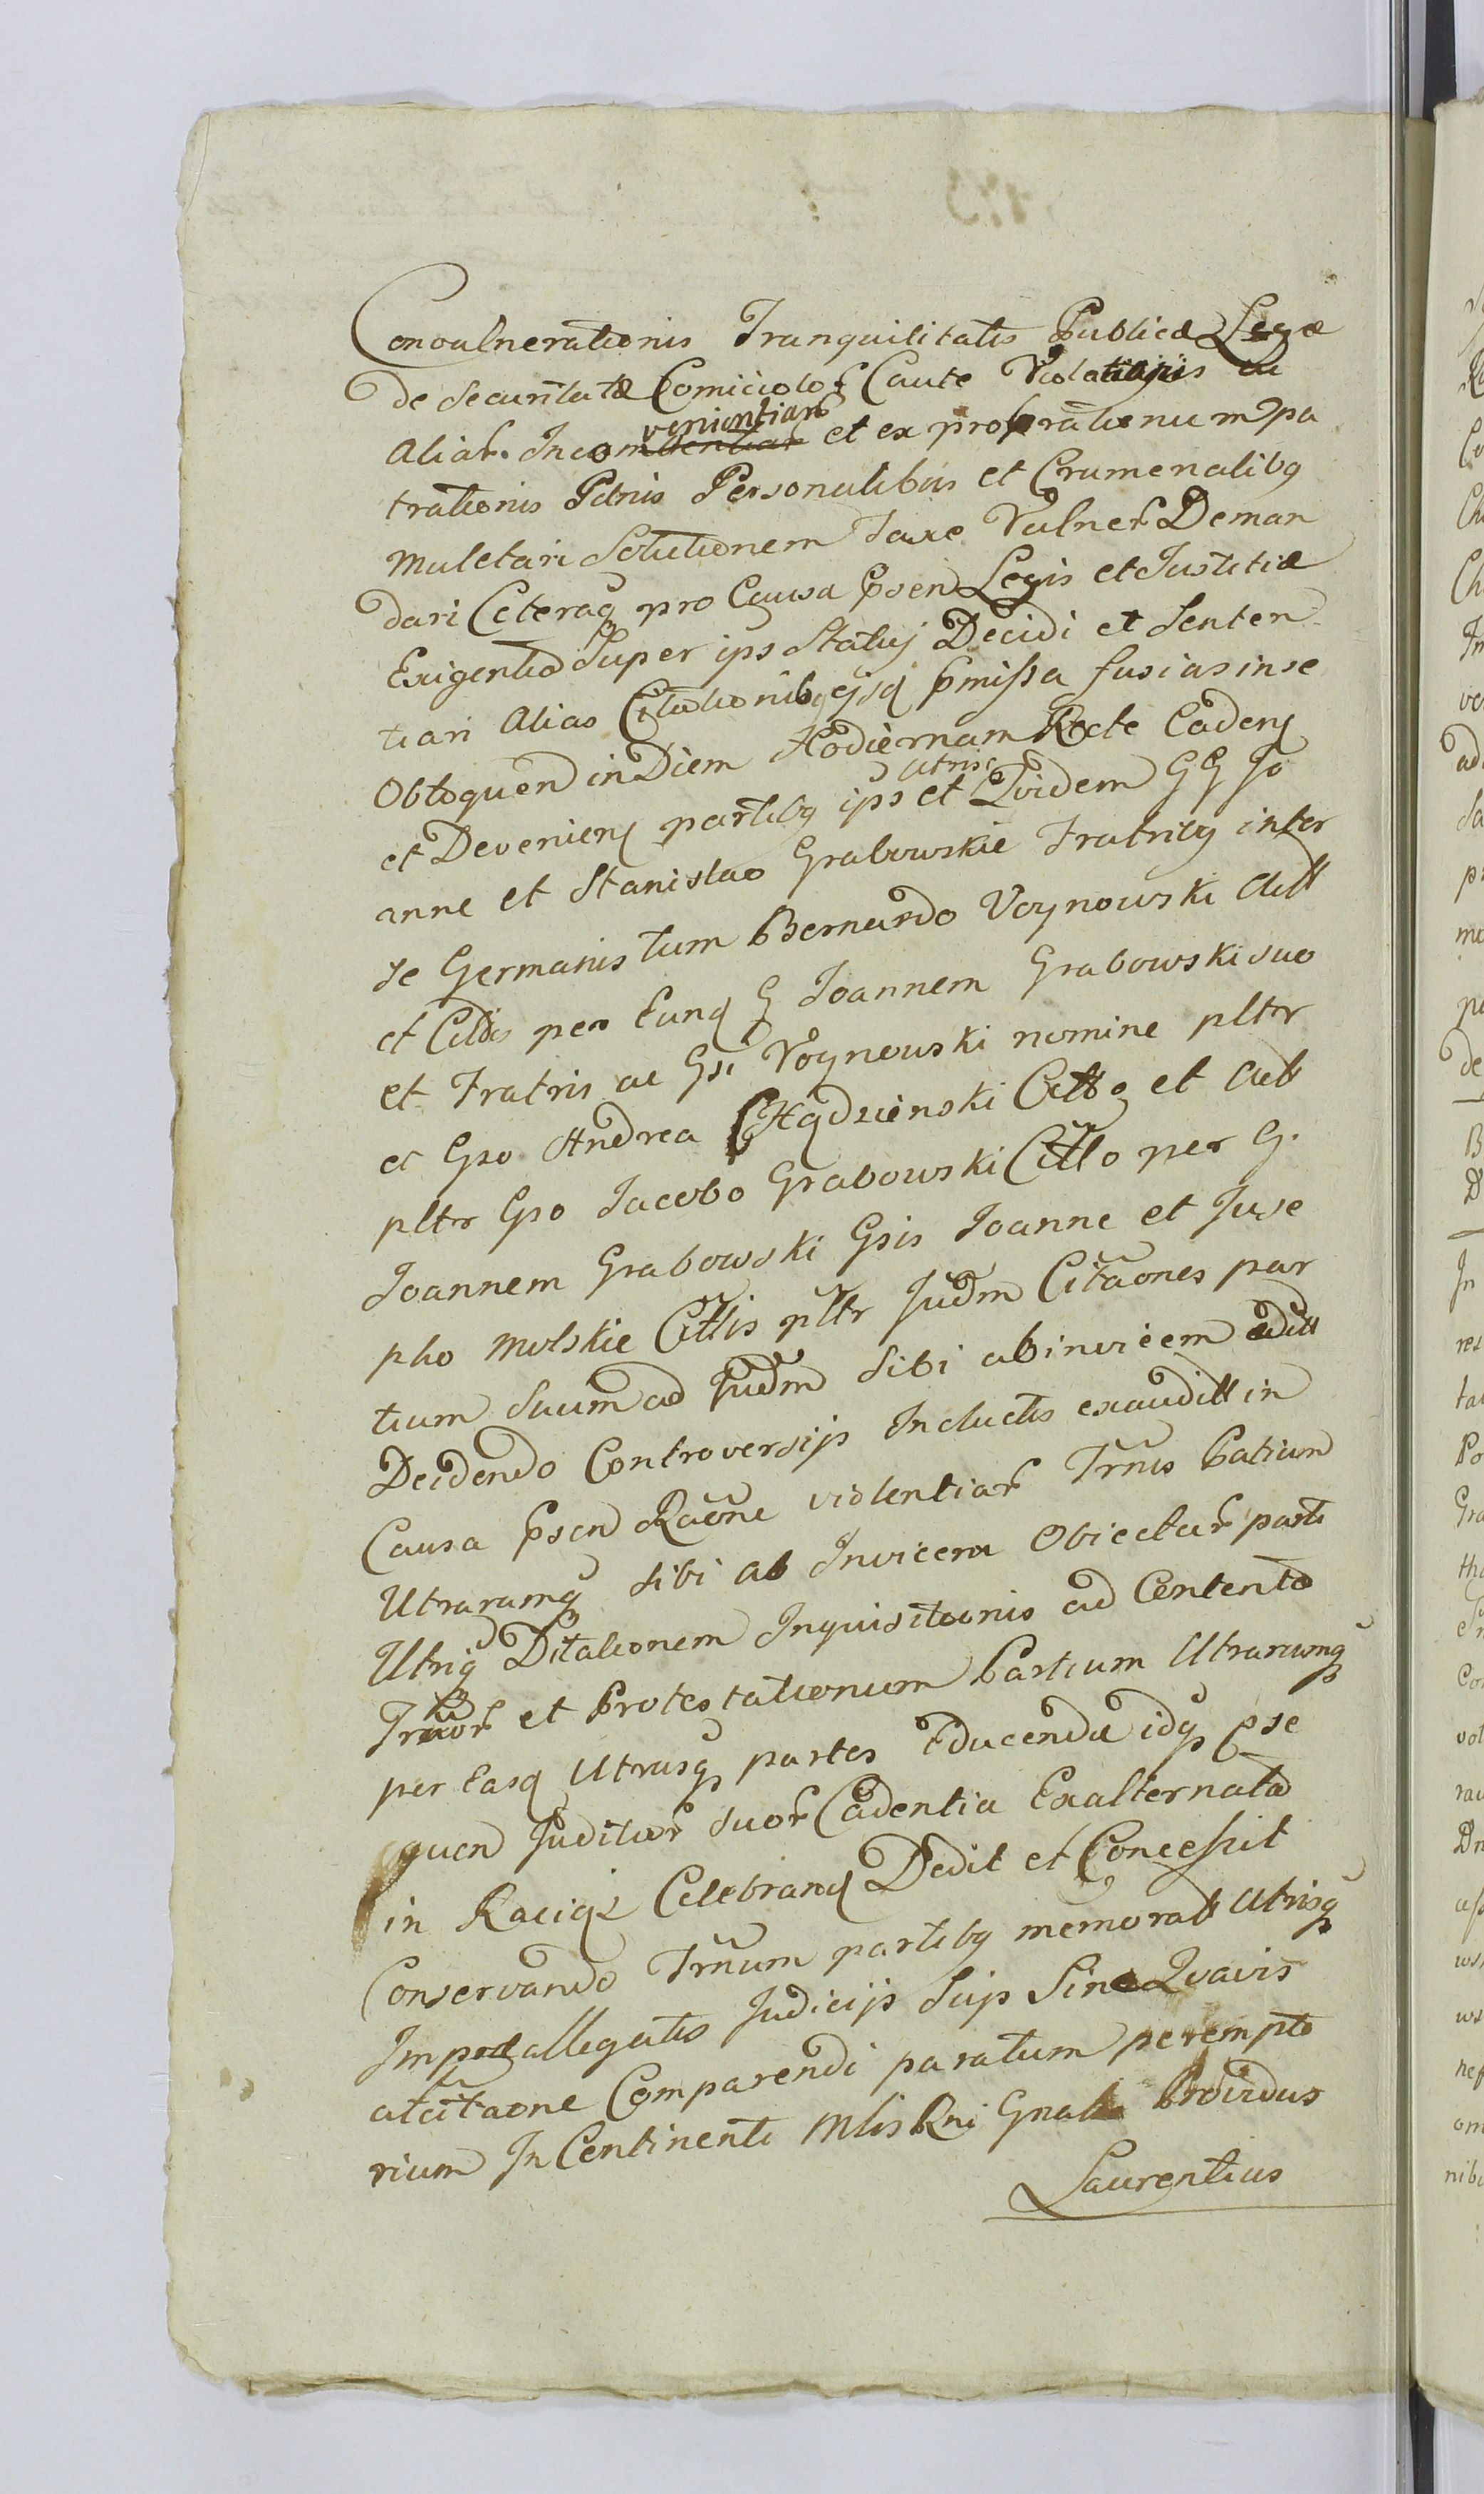 Convulnerationis Tranquilitatis Publicæ Legæ
de Securitate Comiciolor Caute Violationis
Aliar. Incon venientiar et ex probrationum pa
trationis Pænis Personalibus et Crumenalibq
Mulctari Solutionem Taxe Vulner Deman
dari Ceteraq pro Causa Psen Legis et Justitiæ
Exigentia Super ips Statuj Decidi et Senten
tiari Alias Citationibq ejsq Pmissa fusias in se
Obloquen in Diem Hodiernam Recte Cadenj
et Devenienj partibq ips et utrisq Quidem GG Jo
anne et Stanislao Grabowskie Fratribq inter
se Germanis tum Bernardo Voynowski Actt
et Cittis per Eunq G Joannem Grabowski suo
et Fratris ac Gsi Voynowski nomine pltr
et Gso Andrea Chądzienski Citto et Actt
pltr Gso Jacobo Grabowski Citto per G.
Joannem Grabowski Gsis Joanne et Jose
pho Molskie Cittis pltr Judm Citãones par
tium Suum ad Judm Sibi abinvicem editt
Decidendo Controversijs Inductis exauditt in
Causa Psen Raõne violentiar Trnis Patium
Utrarumq sibi ab Invicem Obiectar parti
Utriq Dilationem Inquisitionis ad Contenta
et Protestationum Partium Utrarumq
per Easq Utrasq partes Educenda idq Pse
quen Juditior suor Cadentia Exalternata
in Raciąz Celebranq Dedit et Concessit
Conservando Trnum partibq memoratt Utrisq
Impræallegatis Judicijs Suis Sine Quavis
atcitaone Comparendi paratum perempto
rium In Continenti Mlis Rni Gnalis Providus
Laurentius